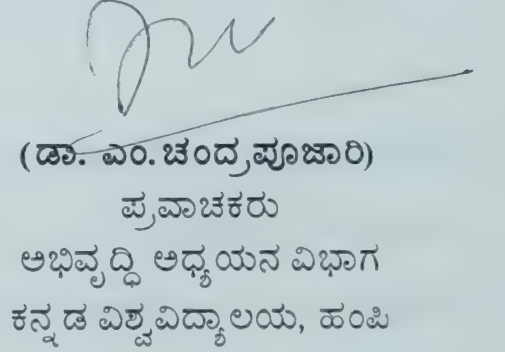 (ಡಾ. ಎಂ. ಚಂದ್ರಪೂಜಾರಿ)
ಪ್ರವಾಚಕರು
ಅಭಿವೃದ್ಧಿ ಅಧ್ಯಯನ ವಿಭಾಗ
ಕನ್ನಡ ವಿಶ್ವವಿದ್ಯಾಲಯ, ಹಂಪಿ